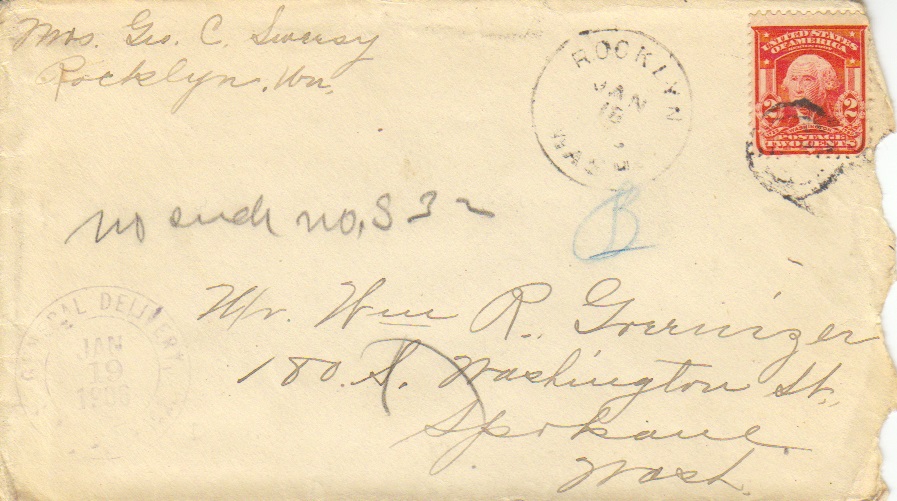 Mrs. Geo. C. Swersy
Rocklyn, Wn.
ROCKLYN
JAN
16
WASH
UNITED STATES
OF AMERICA
2 2
POSTAGE
TWO CENTS
no such no. S 32
B
Mr. Wm R. Goerwizer
180. S. Washington St.,
Spokane
Wash.
GENERAL DELIVERY
JAN
19